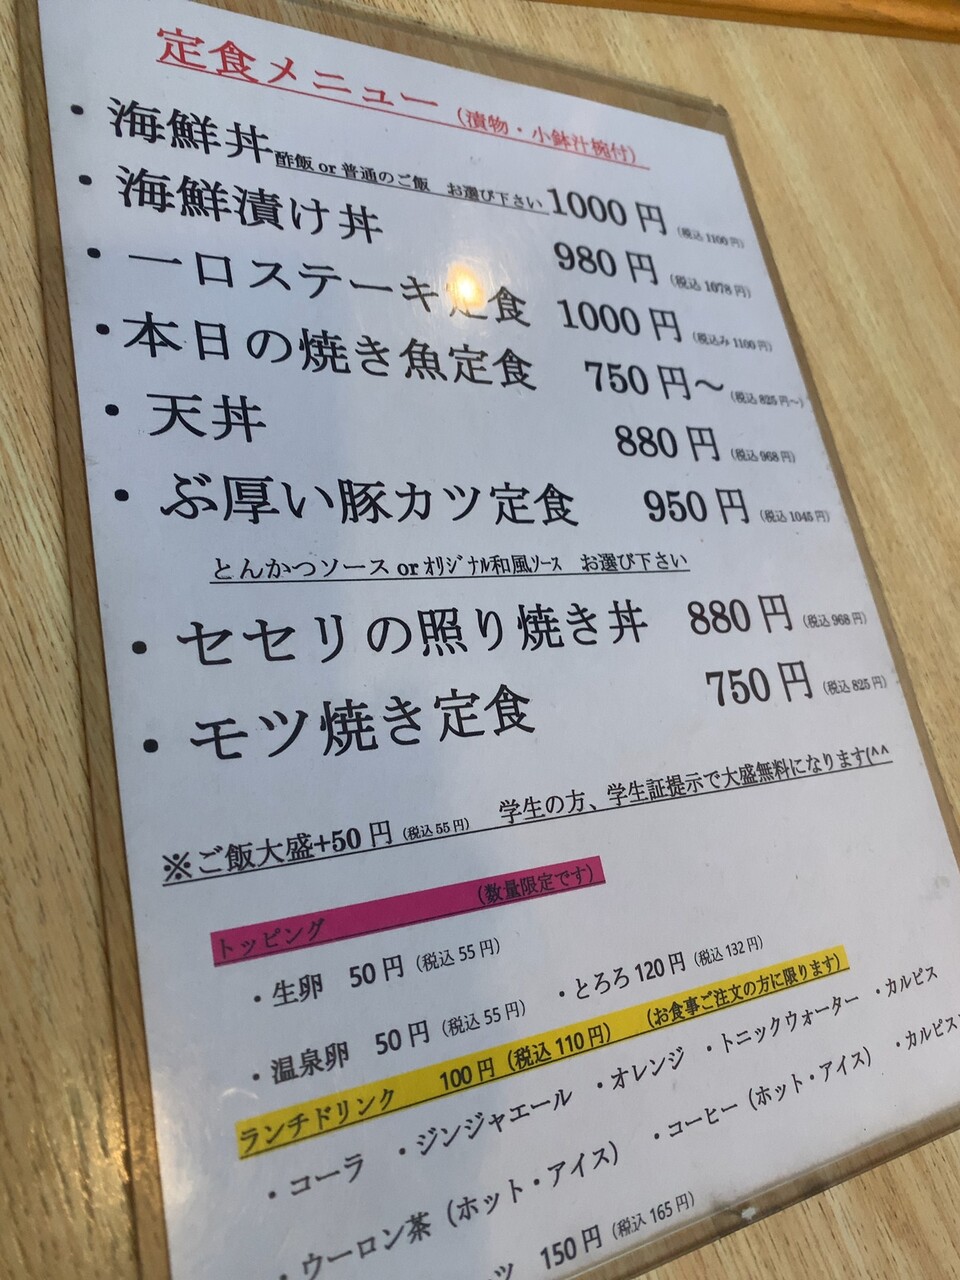 定食メニュー（漬物・小鉢汁椀付）
・海鮮丼 酢飯 or 普通のご飯 お選び下さい 1000円（税込1100円）
・海鮮漬け丼 980円（税込1078円）
・一口ステーキ定食 1000円（税込み1100円）
・本日の焼き魚定食 750円〜（税込825円〜）
・天丼 880円（税込968円）
・ぶ厚い豚カツ定食 950円（税込1045円）
とんかつソース or ｵﾘｼﾞﾅﾙ和風ｿｰｽ お選び下さい
・セセリの照り焼き丼 880円（税込968円）
・モツ焼き定食 750円（税込825円）
※ご飯大盛+50円（税込55円） 学生の方、学生証提示で大盛無料になります(^^
トッピング （数量限定です）
・生卵 50円（税込55円） ・とろろ120円（税込132円）
・温泉卵 50円（税込55円）
ランチドリンク 100円（税込110円） （お食事ご注文の方に限ります）
・コーラ ・ジンジャエール ・オレンジ ・トニックウォーター ・カルピス
・ウーロン茶（ホット・アイス） ・コーヒー（ホット・アイス） ・カルピス
150円（税込165円）